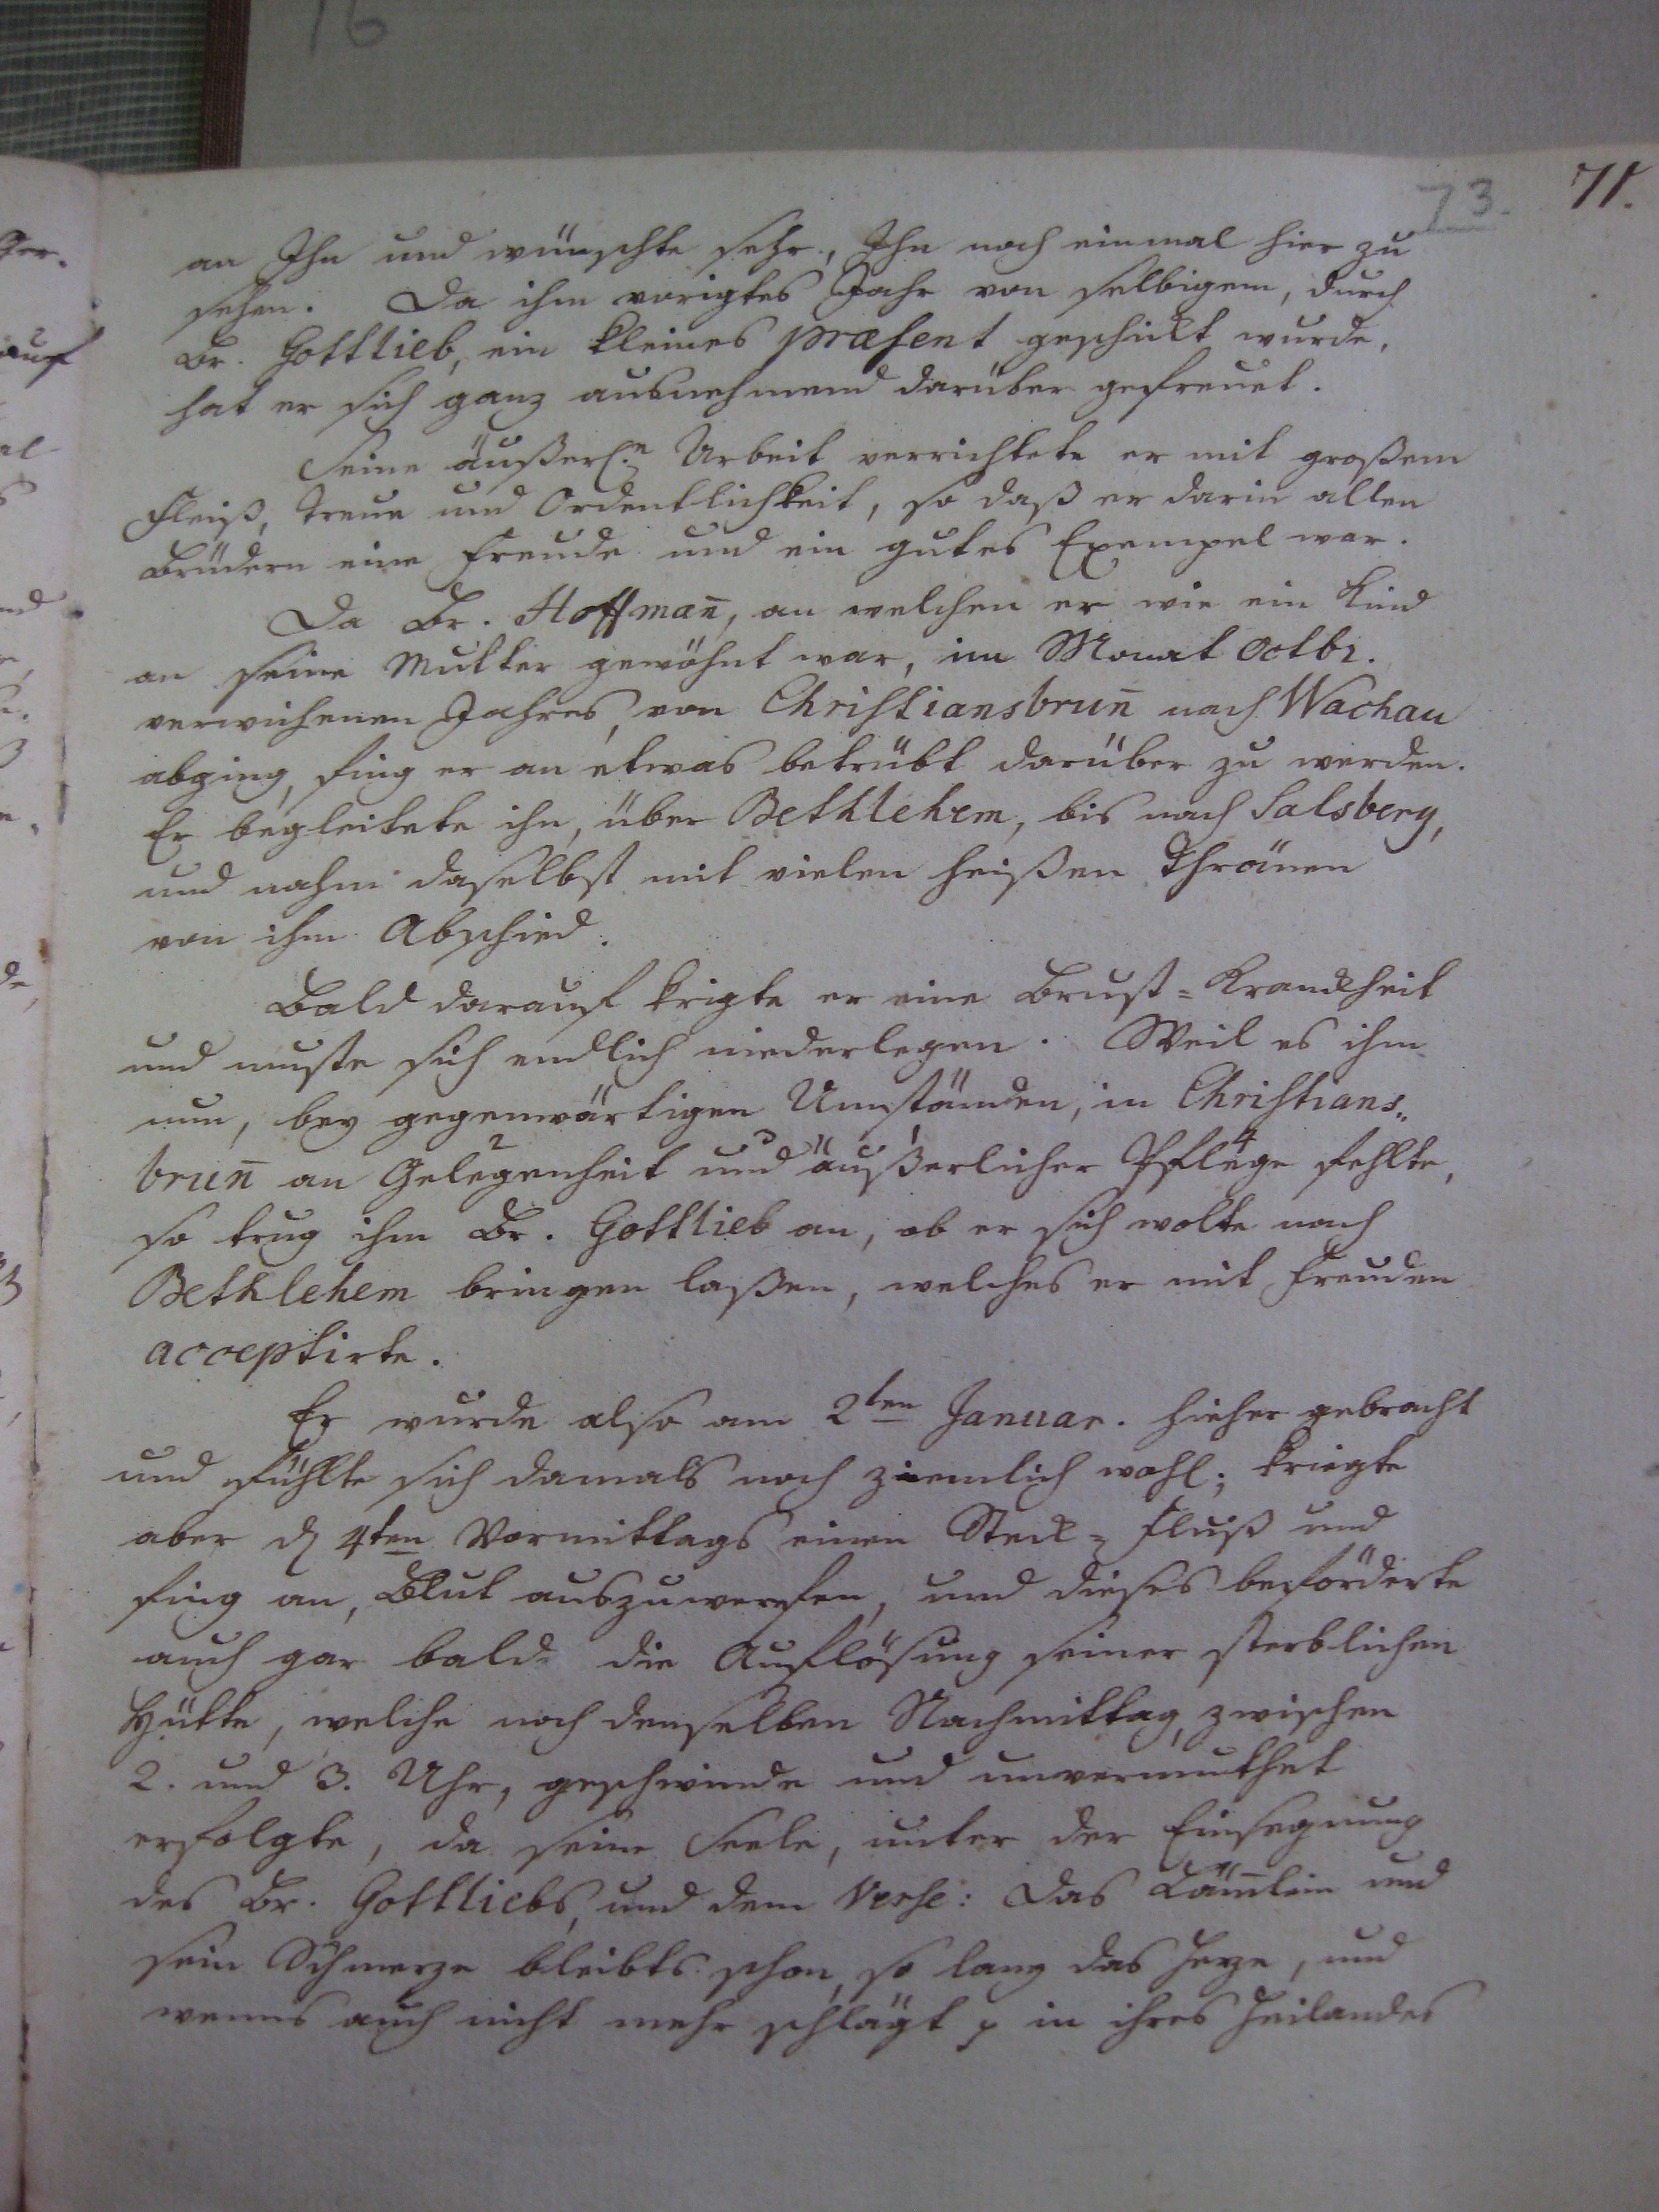 16
73. 71.
an Ihn und wünschte sehr, Ihn noch einmal hier zu
sehen. Da ihm vorigtes Jahr von selbigem, durch
Br. Gottlieb, ein kleines præsent geschickt wurde,
hat er sich ganz ausnehmend darüber gefreuet.
Seine äußerl.n Arbeit verrichtete er mit großem
Fleiß, Treue und Ordentlichkeit, so daß er darin allen
Brüdern eine Freude und ein gutes Exempel war.
Da Br. Hoffman̄, an welchen er wie ein Kind
an seine Mutter gewöhnt war, im Monat Octbr.
verwichenen Jahres, von Christiansbrun̄ nach Wachau
abging, fing er an etwas betrübt darüber zu werden.
Er begleitete ihn, über Bethlehem, bis nach Salsberg,
und nahm daselbst mit vielen heißen Thränen
von ihm Abschied.
Bald darauf krigte er eine Brust=Kranckheit
und muste sich endlich niederlegen. Weil es ihm
nun, bey gegenwärtigen Umständen, in Christians„
brun̄ an Gelegenheit und äußerlicher Pflege fehlte,
so trug ihm Br. Gottlieb an, ob er sich wolte nach
Bethlehem bringen laßen, welches er mit Freuden
acceptirte.
Er wurde also am 2ten Januar. hieher gebracht
und fühlte sich damals noch ziemlich wohl; kriegte
aber d 4ten Vormittags einen Steck=Fluß und
fing an, Blut auszuwerfen, und dieses beförderte
auch gar bald die Auflösung seiner sterblichen
Hütte, welche noch denselben Nachmittag, zwischen
2. und 3. Uhr, geschwinde und unvermuthet
erfolgte, da seine Seele, unter der Einsegnung
des Br. Gottliebs, und dem Verse: Das Läm̄lein und
sein Schmerze bleibts schon, so lang das Herze, und
wenns auch nicht mehr schlägt p in ihres Heilandes